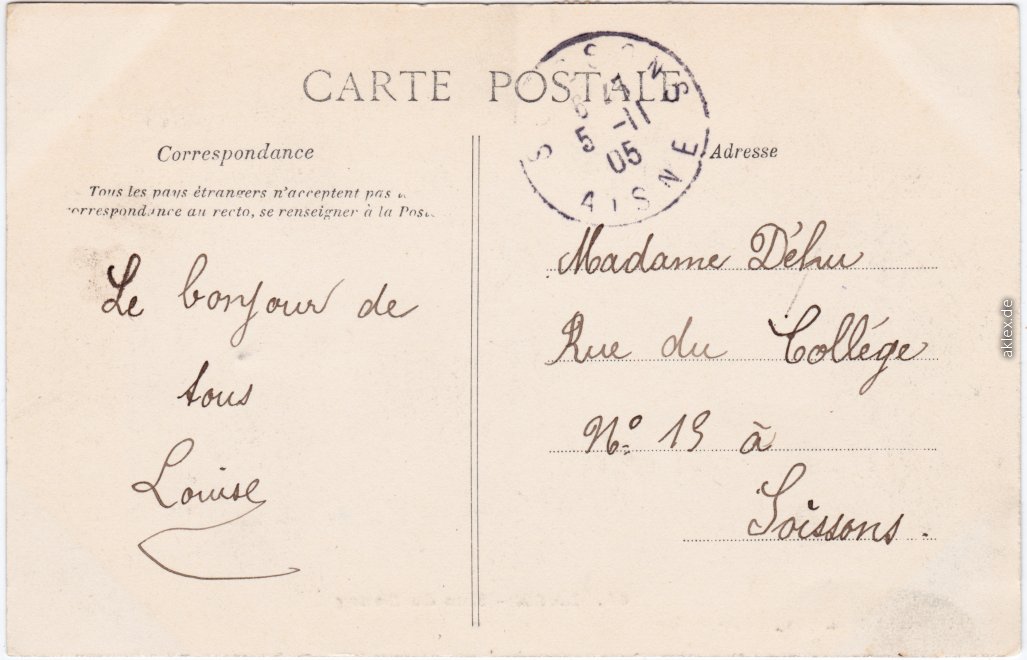 CARTE POSTALE
SOISSONS
5 -11
05
AISNE
Correspondance
Tous les pays étrangers n'acceptent pas
correspondance au recto, se renseigner à la Poste
Le bonjour de
tous
Louise
Adresse
Madame Déhu
Rue du Collége
N° 19 à
Soissons.
aklex.de